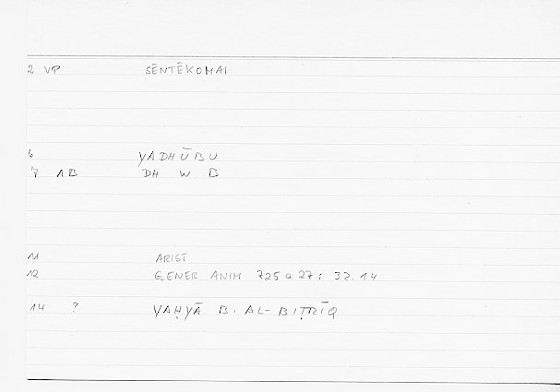 2 VP SĒNTĒKOMAI
6 YADHŪBU
7 AB DH W B
11 ARIST
12 GENER ANIM 725 a 27 : 32.14
14 ? YAḤYĀ B. AL-BIṬRĪQ